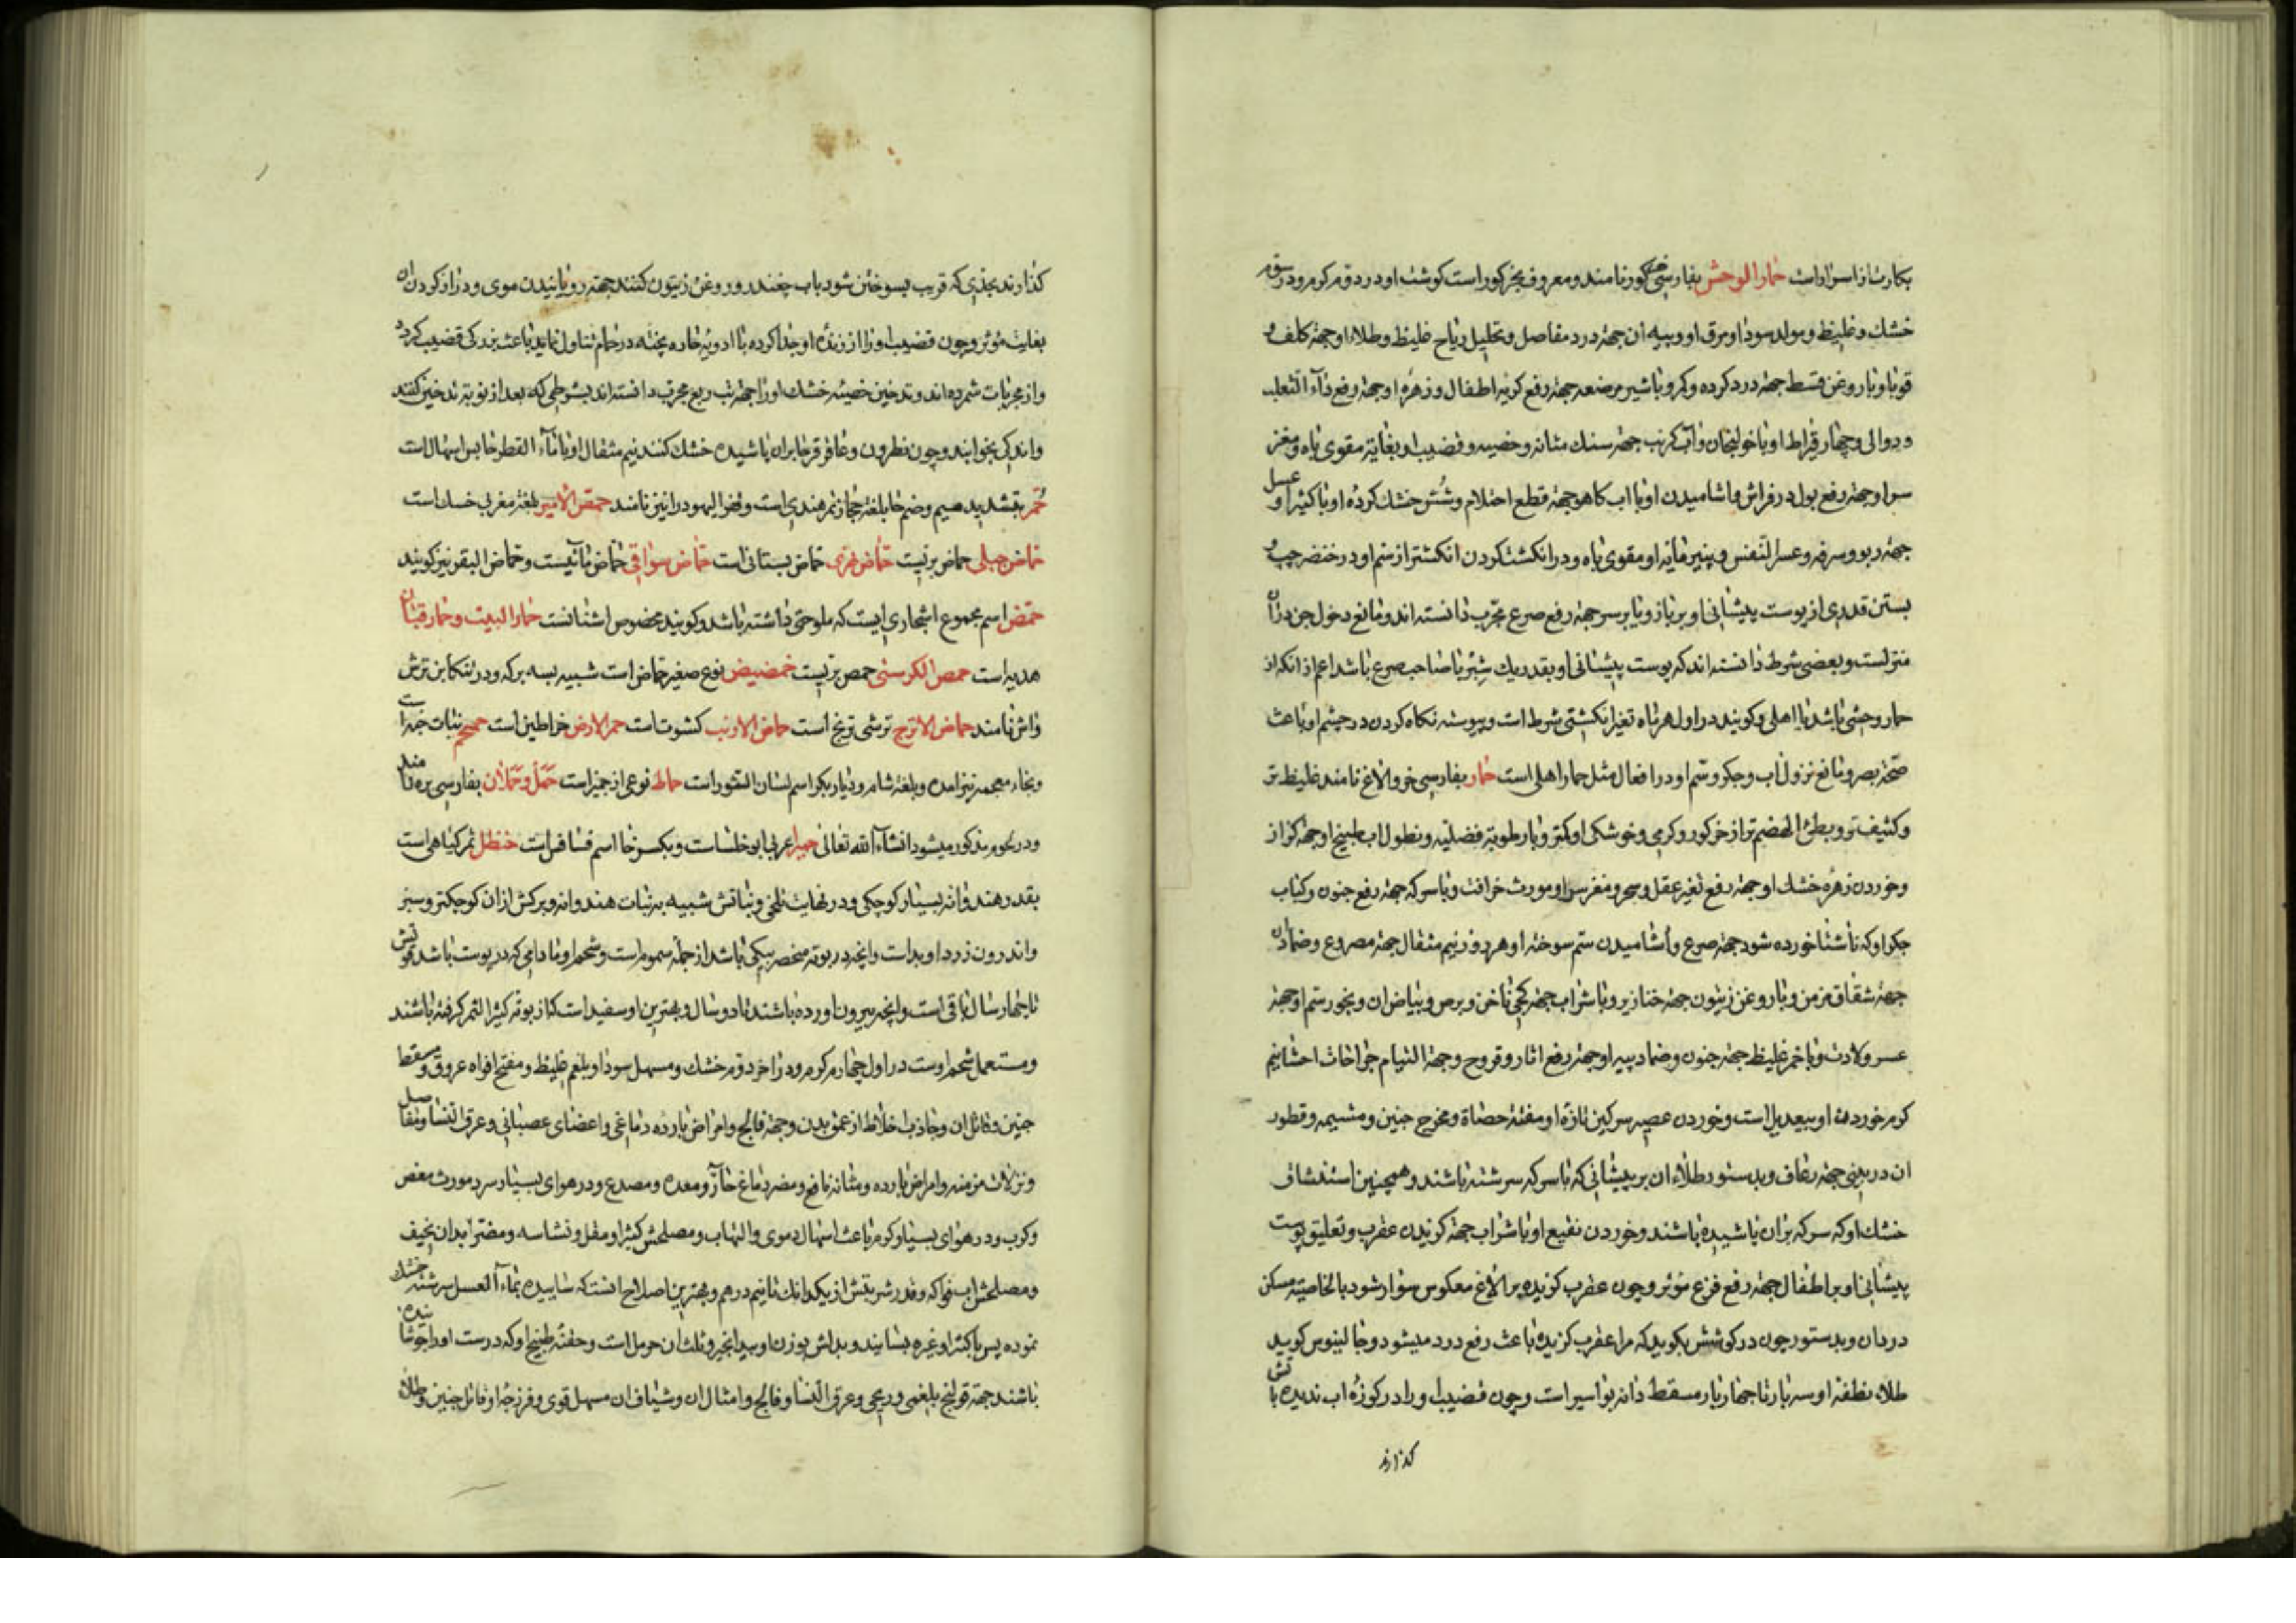 بکارت زا سزاوار است حمار الوحش بفارسی خر کور نامند و معروف بخر کور است کوشت او در دوم کرم و در سوم
خشك و غلیظ و مولد سودا و مرق او و پیه ان جهة درد مفاصل و تحلیل ریاح غلیظ و طلاء او جهة کلف و
قوبا و با روغن قسط جهة درد کرده و کمر و با شیر مرضعه جهة رفع کریه اطفال و زهره او جهة رفع داء الثعلب
و دوالی و چهار قیراط او با خولنجان و آب کرنب جهة سنك مثانه و خصیه و قضیب او بغایة مقوی باه و مغز
سر او جهة رفع بول در فراش و اشامیدن او با اب کاهو جهة قطع احتلام و شش خشك کرده او با کثیرا و عسل
جهة ربو و سرفه و عسر النفس و پنیر مایه او مقوی باه و در انکشت کردن انکشتر از سم او در خنصر چپ و
بستن قدری از پوست پیشانی او بر بازو یا بر سر جهة رفع صرع مجرب دانسته اند و مانع دخول جن دران
منزلست و بعضی شرط دانسته اند که پوست پیشانی او بقدر یك شبر با صاحب صرع باشد اعم از انکه از
حمار وحشی باشد یا اهلی و کویند در اول هر ماه تغیر انکشتی شرط است و پیوسته نکاه کردن در چشم او باعث
صحة بصر و مانع نزول اب و جکر و سم او در افعال مثل حمار اهلی است حمار بفارسی خر و الاغ نامند غلیظ تر
و کثیف تر و بطئ الهضم تر از خر کور و کرمی و خوشکی او کمتر و با رطوبة فضلیه و نطول اب طبیخ او جهة کزاز
و خوردن زهره خشك او جهة رفع تغیر عقل و سحر و مغز سر او مورث خرافت و با سرکه جهة رفع جنون و کباب
جکر او که ناشتا خورده شود جهة صرع و اشامیدن سم سوخته او هر روز نیم مثقال جهة مصروع و ضماد ان
جهة شقاق مزمن و با روغن زیتون جهة خنازیر و با شراب جهة کجی ناخن و برص و بیاض ان و بخور سم او جهة
عسر ولادت و با خمر غلیظ جهة جنون و ضماد پیه او جهة رفع اثار و قروح و جهة التیام جراحات احشا نیم
کرم خوردن او بیعدیل است و خوردن عصیر سرکین تازه او مفتة حصاة و مخرج جنین و مشیمه و قطور
ان در بینی جهة رعاف و بدستور طلاء ان بر پیشانی که با سرکه سرشته باشند و همچنین استنشاق
خشك او که سرکه بران پاشیده باشند و خوردن نقیع او با شراب جهة کزیدن عقرب و تعلیق پوست
پیشانی او بر اطفال جهة رفع فزع مؤثر و چون عقرب کزیده بر الاغ معکوس سوار شود بالخاصیة مسکن
درد ان و بدستور چون در کوشش بکوید که مرا عقرب کزیده باعث رفع درد میشود و جالینوس کوید
طلاء نطفه او سه بار تا چهار بار مسقط دانه بواسیر است و چون قضیب او را در کوزه اب ندیده با تش
کذارند
کذارند بحدی که قریب بسوختن شود باب چغندر و روغن زیتون کنند جهة رویانیدن موی و دراز کردن ان
بغایت مؤثر و چون قضیب او را از زنده او جدا کرده با ادویه حاره پخته در حمام تناول نمایند باعث بزرکی قضیب کردد
و از مجربات شمرده اند و تدخین خصیه خشك او را جهة تب ربع مجرب دانسته اند بشرطی که بعد از نوبة تدخین کنند
و اندکی بخوابند و چون نطرون و عاقرقرحا بران پاشیده خشك کنند نیم مثقال او با ماء القطر حابس اسهال است
حمر بتشدید میم و ضم حا بلغة حجاز تمر هندی است و قفر الیهود را نیز نامند حمض الامیر بلغة مغربی خسك است
حماض جبلی حماض بریست حماض نهری حماض بستانی است حماض سواقی حماض مائیست و حماض البقر نیز کویند
حمض اسم مجموع اشجاری ایست که ملوحتی داشته باشد و کویند مخصوص اشنانست حمار البیت و حمار قبان
هدبه است حمص الکرسنی حمص بریست حمضیض نوع صغیر حماض است شبیه بسه برکه و در تنکابن ترش
واش نامند حماض الاترج ترشی ترنج است حماض الارنب کشوت است حمر الارض خراطین است حمحم نبات خمرا است
و بخاء معجمه نیز امده و بلغة شام و دیار بکر اسم لسان الثور است حماط نوعی از جمیز است حمل و حملان بفارسی بره نامند
و در لحوم مذکور میشود انشاء الله تعالی حمیرا عربی ابوخلسا ست و بکسر حا اسم فسافس است حنظل ثمر کیاهی است
بقدر هندوانه بسیار کوچکی و در نهایت تلخی و نباتش شبیه به نبات هندوانه و برکش ازان کوچکتر و سبز
و اندرون زرد او بد است و انچه در بوته منحصر بیکی باشد از جمله سموم است و شحم او ما دامی که در پوست باشد قوتش
تا چهار سال باقی است و انچه بیرون اورده باشند تا دو سال و بهترین او سفید است که از بوته کثیر الثمر کرفته باشند
و مستعمل شحم اوست در اول چهارم کرم و در اخر دوم خشك و مسهل سودا و بلغم غلیظ و مفتح افواه عروق و مسقط
جنین و قاتل ان و جاذب اخلاط از عمق بدن و جهة فالج و امراض بارده دماغی و اعضای عصبانی و عرق النسا و مفاصل
و نزلات مزمنه و امراض بارده و مثانه نافع و مضر دماغ حار و معده و مصدع و در هوای بسیار سرد مورث مغص
و کرب و در هوای بسیار کرم باعث اسهال دموی و التهاب و مصلحش کثیرا و مقل و نشاسه و مضر ابدان نحیف
و مصلحش اب فواکه و قدر شربتش از یکدانك تا نیم درهم و بهترین اصلاح انست که ساییده بماء العسل سرشته خشك
نموده پس با کثیرا و غیره بسایند و بدلش بوزن او بیدانجیر و ثلث ان حرمل است و حقنه طبیخ او که درست او را جوشانیده
باشند جهة قولنج بلغمی و ریحی و عرق النسا و فالج و امثال ان و شیاف ان مسهل قوی و فرزجه او قاتل جنین و طلاء